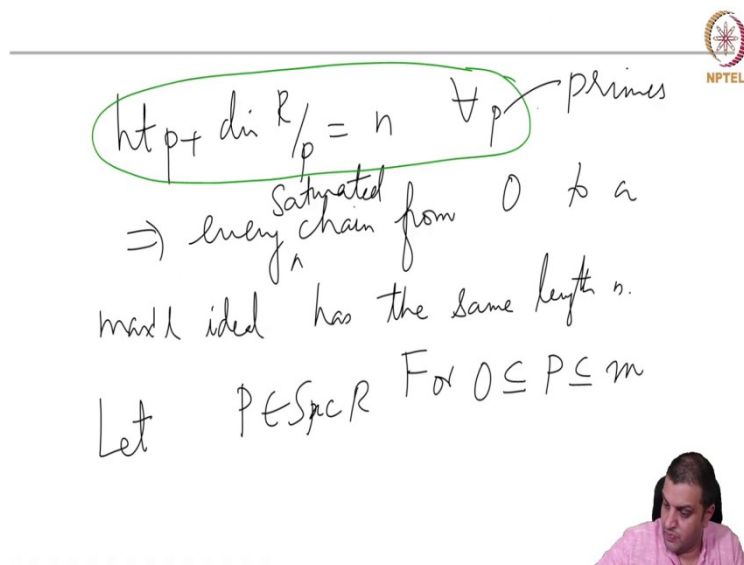 NPTEL
ht p + dim R/p = n ∀ p primes
⇒ every saturated chain from 0 to a
max'l ideal has the same length n.
Let P ∈ Spec R For 0 ⊆ P ⊆ m